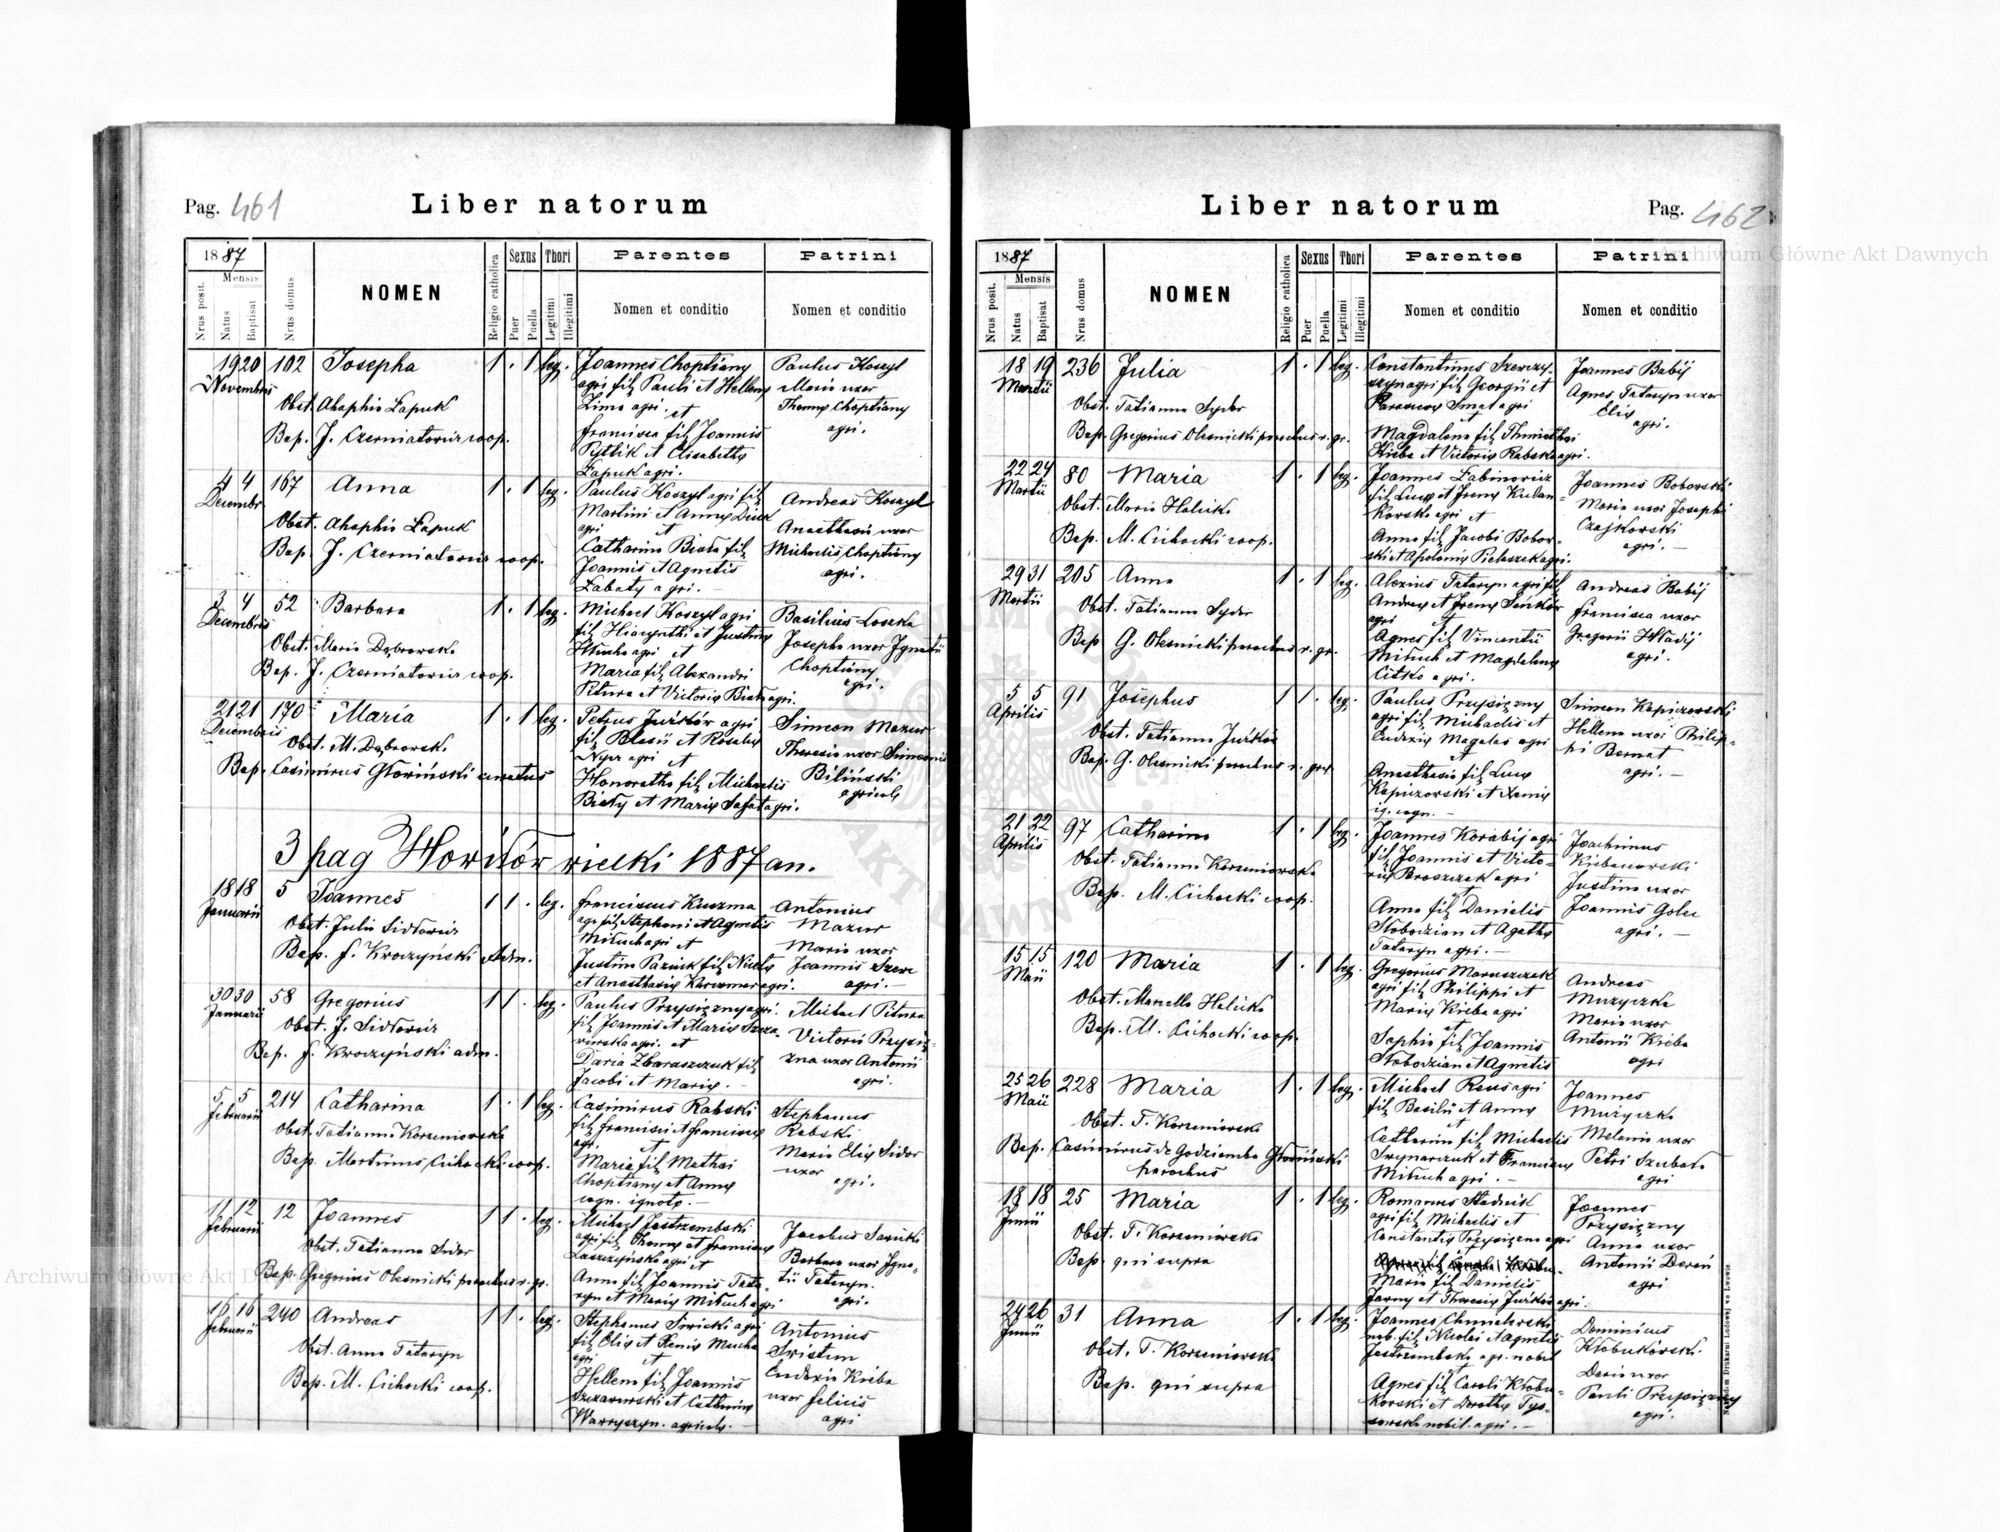 Pag. 461
Liber natorum
1887
Mensis
Nrus posit.
Natus
Baptisat
Nrus domus
NOMEN
Religio catholica
Sexus
Puer
Puella
Thori
Legitimi
Illegitimi
Parentes
Nomen et conditio
Patrini
Nomen et conditio
19 20 102 Josepha 1 . 1 leg. Joannes Choptiany Paulus Koszyl
Novembris agri fil. Pauli et Hellenę Maria uxor
Obst. Ahaphia Łapuk agri. et Thomę Choptiany
Bap. J. Czerniatowicz coop. Francisca fil. Joannis agri.
Pytlik et Elisabethę
Łapuk agri.
4 4 167 Anna 1 . 1 leg. Paulus Koszyl agri fil. Andreas Koszyl
Decembr Martini et Annę
Obst. Ahaphia Łapuk agri et Anasthasia uxor
Bap. J. Czerniatowicz coop. Catharina Biała fil. Michaelis Choptiany
Joannis et Agnetis agri.
Łabaty agri.
3 4 52 Barbara 1 . 1 leg. Michael Koszyl agri Basilius Loszka
Decembris fil. Hiacynthi et Justinę Josepha uxor Ignatii
Obst. Maria Dąbrowska agri et Choptiany
Bap. J. Czerniatowicz coop. Maria fil. Alexandri agri.
Pitura et Victorię Biała agri.
21 21 170 Maria 1 . 1 leg. Petrus Juśków agri Simeon Mazur
Decembris fil. Blasii et Rosalię Theresia uxor Simeonis
Obst. M. Dąbrowsk. agri et Biliński
Bap. Casimirus Głoriński curatus Honoratha fil. Michaelis agricolę
Biały et Marię agri.
3 pag Howiłów wielki 1887 an.
18 18 5 Joannes 1 1 . leg. Franciscus Kuzma Antonius
Januarii agr. fil. Stephani et Agnetis Mazur
Obst. Julia Sidłowicz Mituch agri et Maria uxor
Bap. F. Kroczyński Adm. Justina Paziuk fil. Joannis Szewc
et Anasthasię agri. agri. —
30 30 58 Gregorius 1 1 . leg. Paulus Przysiężny agri. Michael Pitura
Januarii fil. Joannis et Marię
Obst. J. Sidłowicz agri. et Victoria Przysięż-
Bap. F. Kroczyński adm. Daria Zbaraszczuk fil. zna uxor Antonii
Jacobi et Marię. — agri.
5 5 214 Catharina 1 . 1 leg. Casimirus Rabski Stephanus
Februarii fil. Francisci et Franciscę Rabski
Obst. Tatianna Korzeniowska agr. et Maria Elię Sidor
Bap. Martinus Cichocki coop. Maria fil. Mathei uxor
Choptiany et Annę agri.
cogn. ignotę. —
11 12 12 Joannes 1 1 . leg. Michael Jastrzembski Jacobus Sawicki
Februarii agri fil. Thomę et Franciscę
Obst. Tatianna Sidor Łaszczyńska agri et Barbara uxor Igna-
Bap. Gregorius Olesnicki parochus r. gr. Anna fil. Joannis Tata- tii Tataryn.
ryn et Marię Mituch agri agri.
16 16 240 Andreas 1 1 . leg. Stephanus Sawicki agri Antonius
Februarii fil. Elię et Xenię Mucha
Obst. Anna Tataryn agri et Eudoxia Kiéba
Bap. M. Cichocki coop. Hellena fil. Joannis uxor Felicis
et Catharinę agri
agricolę. —
Liber natorum
Pag. 462
1887
Mensis
Nrus posit.
Natus
Baptisat
Nrus domus
NOMEN
Religio catholica
Sexus
Puer
Puella
Thori
Legitimi
Illegitimi
Parentes
Nomen et conditio
Patrini
Nomen et conditio
18 19 236 Julia 1 . 1 leg. Constantinus Szewczy- Joannes Babij
Martii szyn agri fil. Georgii et Agnes Tataryn uxor
Obst. Tatianna Sydor agri Elię
Bap. Gregorius Olesnicki parochus r. gr. Magdalena fil. agri.
Kiéba et Victorię Rabska agri.
22 24 80 Maria 1 . 1 leg. Joannes Łabinowicz Joannes Boborski
Martii fil. Lucę et Irenę Kulan- Maria uxor Josephi
Obst. Maria Halicka kowska agri et Czajkowski
Bap. M. Cichocki coop. Anna fil. Jacobi Bobor- agri. —
ski et Apolonię Pieluszek agri.
29 31 205 Anna 1 . 1 leg. Alexius Tataryn agri fil. Andreas Babij
Martii Andreę et Irenę Francisca uxor
Obst. Tatianna Sydor agri et Gregorii Hładij
Bap. G. Olesnicki parochus r. gr. Agnes fil. Vincentii agri.
Mituch et Magdalenę
agri.
5 5 91 Josephus 1 1 . leg. Paulus Przysiężny Simeon Kopiczowski
Aprilis agri fil. Michaelis et Hellena uxor Philip-
Obst. Tatianna Juśków Eudoxię Magalas agri pi Bernat
Bap. G. Olesnicki parochus r. grc. et agri. —
Anasthasia fil. Lucę
Kopiczowski et Xenię
ig. cogn. —
21 22 97 Catharina 1 . 1 leg. Joannes Korabij agri Joachimus
Aprilis fil. Joannis et Victo-
Obst. Tatianna Korzeniowska rię agri Justina uxor
Bap. M. Cichocki coop. et Joannis
Anna fil. Danielis agri. —
Słobodzian et Agathę
Tataryn agri. —
15 15 120 Maria 1 . 1 leg. Gregorius Maruszczak Andreas
Maii agri fil. Philippi et Muzyczka
Obst. Marcella Halicka Marię Kiéba agri Maria uxor
Bap. M. Cichocki coop. et Antonii Kiéba
Sophia fil. Joannis agri
Słobodzian et Agnetis
25 26 228 Maria 1 . 1 leg. Michael Reus agri Joannes
Maii fil. Basilii et Annę Muzyczka
Obst. T. Korzeniowska et Melania uxor
Bap. Casimirus de Godziemba Głoriński Catharina fil. Michaelis Petri Szubata
parochus et Franciscę agri
Mituch agri. —
18 18 25 Maria 1 . 1 leg. Romanus Stadnik Joannes
Junii agri fil. Michaelis et Przysiężny
Obst. T. Korzeniowska Constantię Przysiężna agri Anna uxor
Bap. qui supra Antonii Dereń
Maria fil. Danielis agri
Jarny et Theresię Juśków agri.
24 26 31 Anna 1 . 1 leg. Joannes Chmielewski Dominicus
Junii nob. fil. Nicolai et Agnetis Kłobukowski.
Obst. T. Korzeniowska Jastrzembska agr. nobil Daria uxor
Bap. qui supra Agnes fil. Caroli Kłobu- Pauli Przysiężny
kowski et Dorothę Tys- agri.
sowska nobil. agri. —
Nakładem Drukarni Ludowej we Lwowie.
Archiwum Główne Akt Dawnych
Archiwum Główne Akt Dawnych